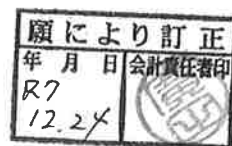 願により訂正
年月日 会計責任者印
R7
12.24